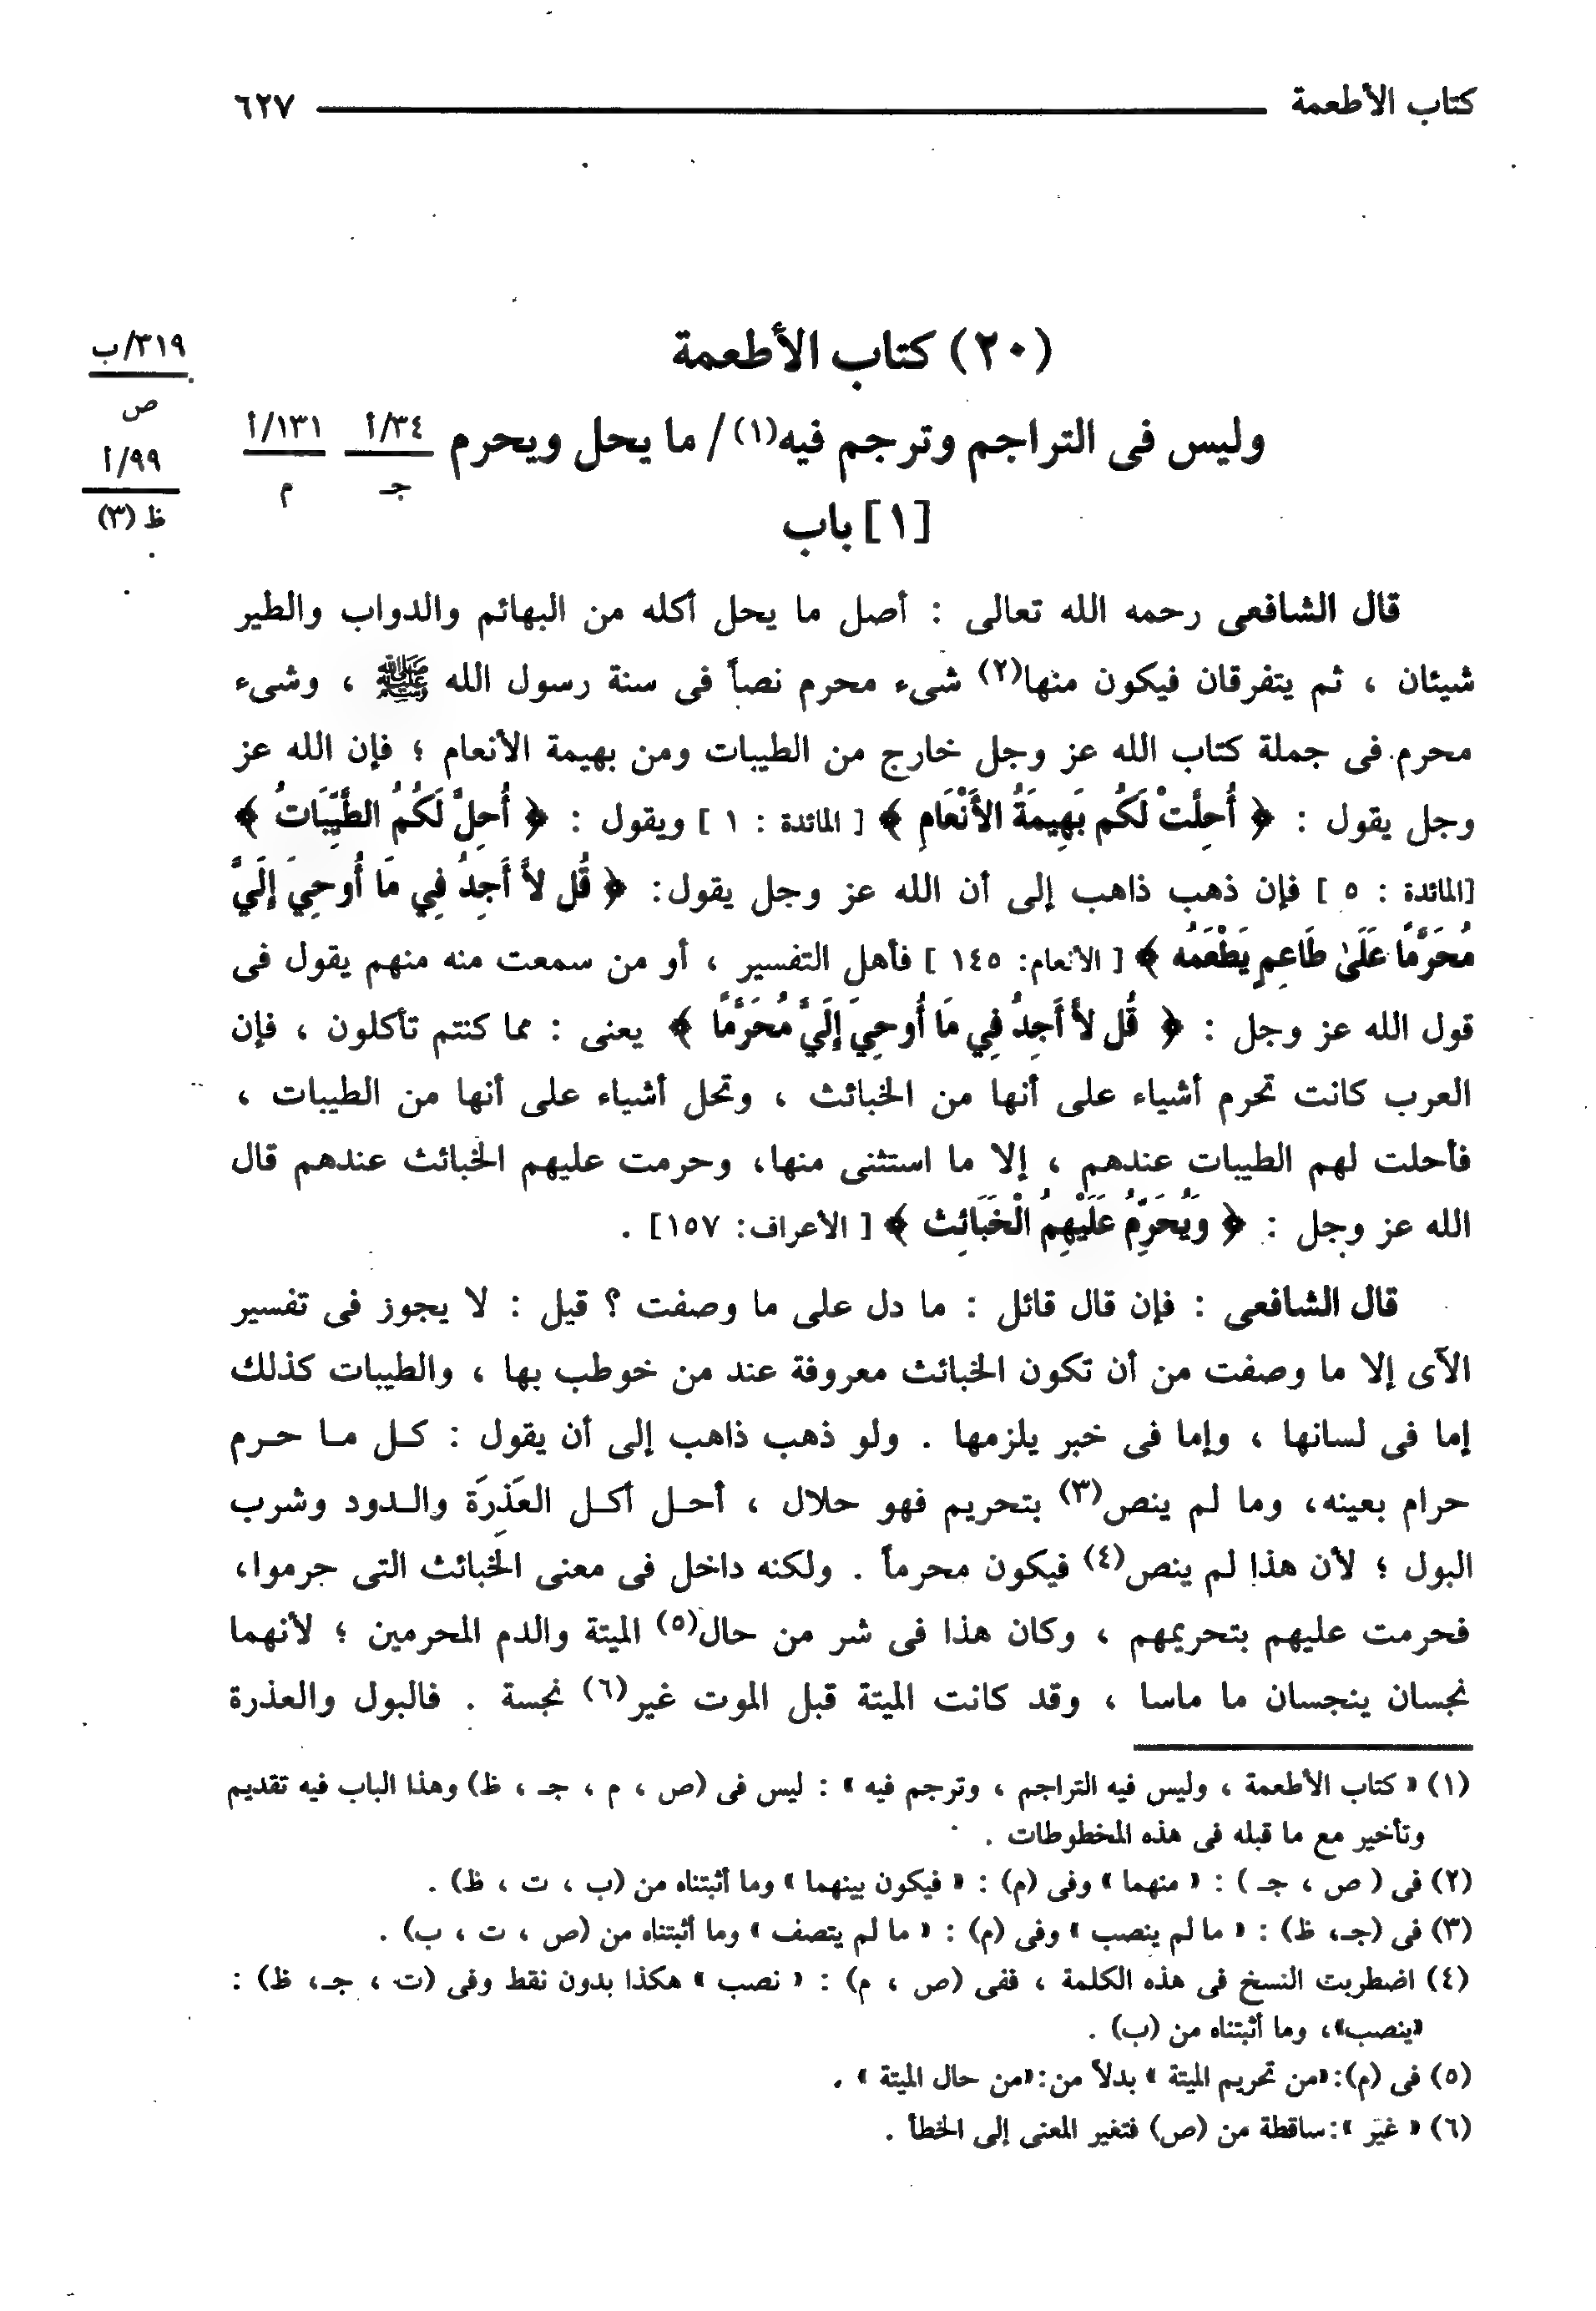 كتاب الأطعمة ٦٢٧
(٢٠) كتاب الأطعمة
وليس فى التراجم وترجم فيه(١) / ما يحل ويحرم
٣٤/أ
جـ
١٣١/أ
م
٣١٩/ب
ص
٩٩/أ
ظ (٣)
[١] باب
قال الشافعى رحمه الله تعالى : أصل ما يحل أكله من البهائم والدواب والطير
شيئان ، ثم يتفرقان فيكون منها(٢) شىء محرم نصاً فى سنة رسول الله ﷺ ، وشىء
محرم فى جملة كتاب الله عز وجل خارج من الطيبات ومن بهيمة الأنعام ؛ فإن الله عز
وجل يقول : ﴿ أُحِلَّتْ لَكُم بَهِيمَةُ الأَنْعَامِ ﴾ [ المائدة : ١ ] ويقول : ﴿ أُحِلَّ لَكُمُ الطَّيِّبَاتُ ﴾
[المائدة : ٥ ] فإن ذهب ذاهب إلى أن الله عز وجل يقول: ﴿ قُل لاَّ أَجِدُ فِي مَا أُوحِيَ إِلَيَّ
مُحَرَّمًا عَلَىٰ طَاعِمٍ يَطْعَمُه ﴾ [ الأنعام: ١٤٥ ] فأهل التفسير ، أو من سمعت منه منهم يقول فى
قول الله عز وجل : ﴿ قُل لاَّ أَجِدُ فِي مَا أُوحِيَ إِلَيَّ مُحَرَّمًا ﴾ يعنى : مما كنتم تأكلون ، فإن
العرب كانت تحرم أشياء على أنها من الخبائث ، وتحل أشياء على أنها من الطيبات ،
فأحلت لهم الطيبات عندهم ، إلا ما استثنى منها، وحرمت عليهم الخبائث عندهم قال
الله عز وجل : ﴿ وَيُحَرِّمُ عَلَيْهِمُ الْخَبَائِثَ ﴾ [ الأعراف: ١٥٧] .
قال الشافعى : فإن قال قائل : ما دل على ما وصفت ؟ قيل : لا يجوز فى تفسير
الآى إلا ما وصفت من أن تكون الخبائث معروفة عند من خوطب بها ، والطيبات كذلك
إما فى لسانها ، وإما فى خبر يلزمها . ولو ذهب ذاهب إلى أن يقول : كـل مـا حـرم
حرام بعينه، وما لم ينص(٣) بتحريم فهو حلال ، أحـل أكـل العَذِرَة والـدود وشرب
البول ؛ لأن هذا لم ينص(٤) فيكون محرماً . ولكنه داخل فى معنى الخبائث التى حرموا،
فحرمت عليهم بتحريمهم ، وكان هذا فى شر من حال(٥) الميتة والدم المحرمين ؛ لأنهما
نجسان ينجسان ما ماسا ، وقد كانت الميتة قبل الموت غير(٦) نجسة . فالبول والعذرة
(١) « كتاب الأطعمة ، وليس فيه التراجم ، وترجم فيه » : ليس فى (ص ، م ، جـ ، ظ) وهذا الباب فيه تقديم
وتأخير مع ما قبله فى هذه المخطوطات .
(٢) فى ( ص ، جـ ) : « منهما » وفى (م) : « فيكون بينهما » وما أثبتناه من (ب ، ت ، ظ) .
(٣) فى (جـ، ظ) : « ما لم ينصب » وفى (م) : « ما لم يتصف » وما أثبتناه من (ص ، ت ، ب) .
(٤) اضطربت النسخ فى هذه الكلمة ، ففى (ص ، م) : « نصب » هكذا بدون نقط وفى (ت ، جـ، ظ) :
«ينصب»، وما أثبتناه من (ب) .
(٥) فى (م):«من تحريم الميتة » بدلاً من:«من حال الميتة » .
(٦) « غير »:ساقطة من (ص) فتغير المعنى إلى الخطأ .